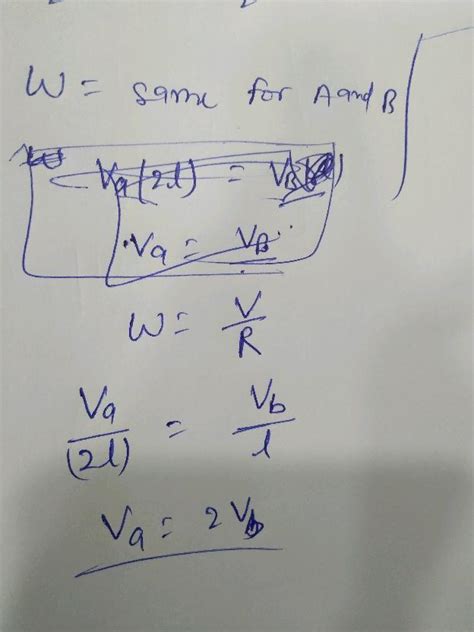 W = same for A and B
Va(2l) = VB
Va = VB
W = V/R
Va/(2l) = Vb/l
Va = 2Vb